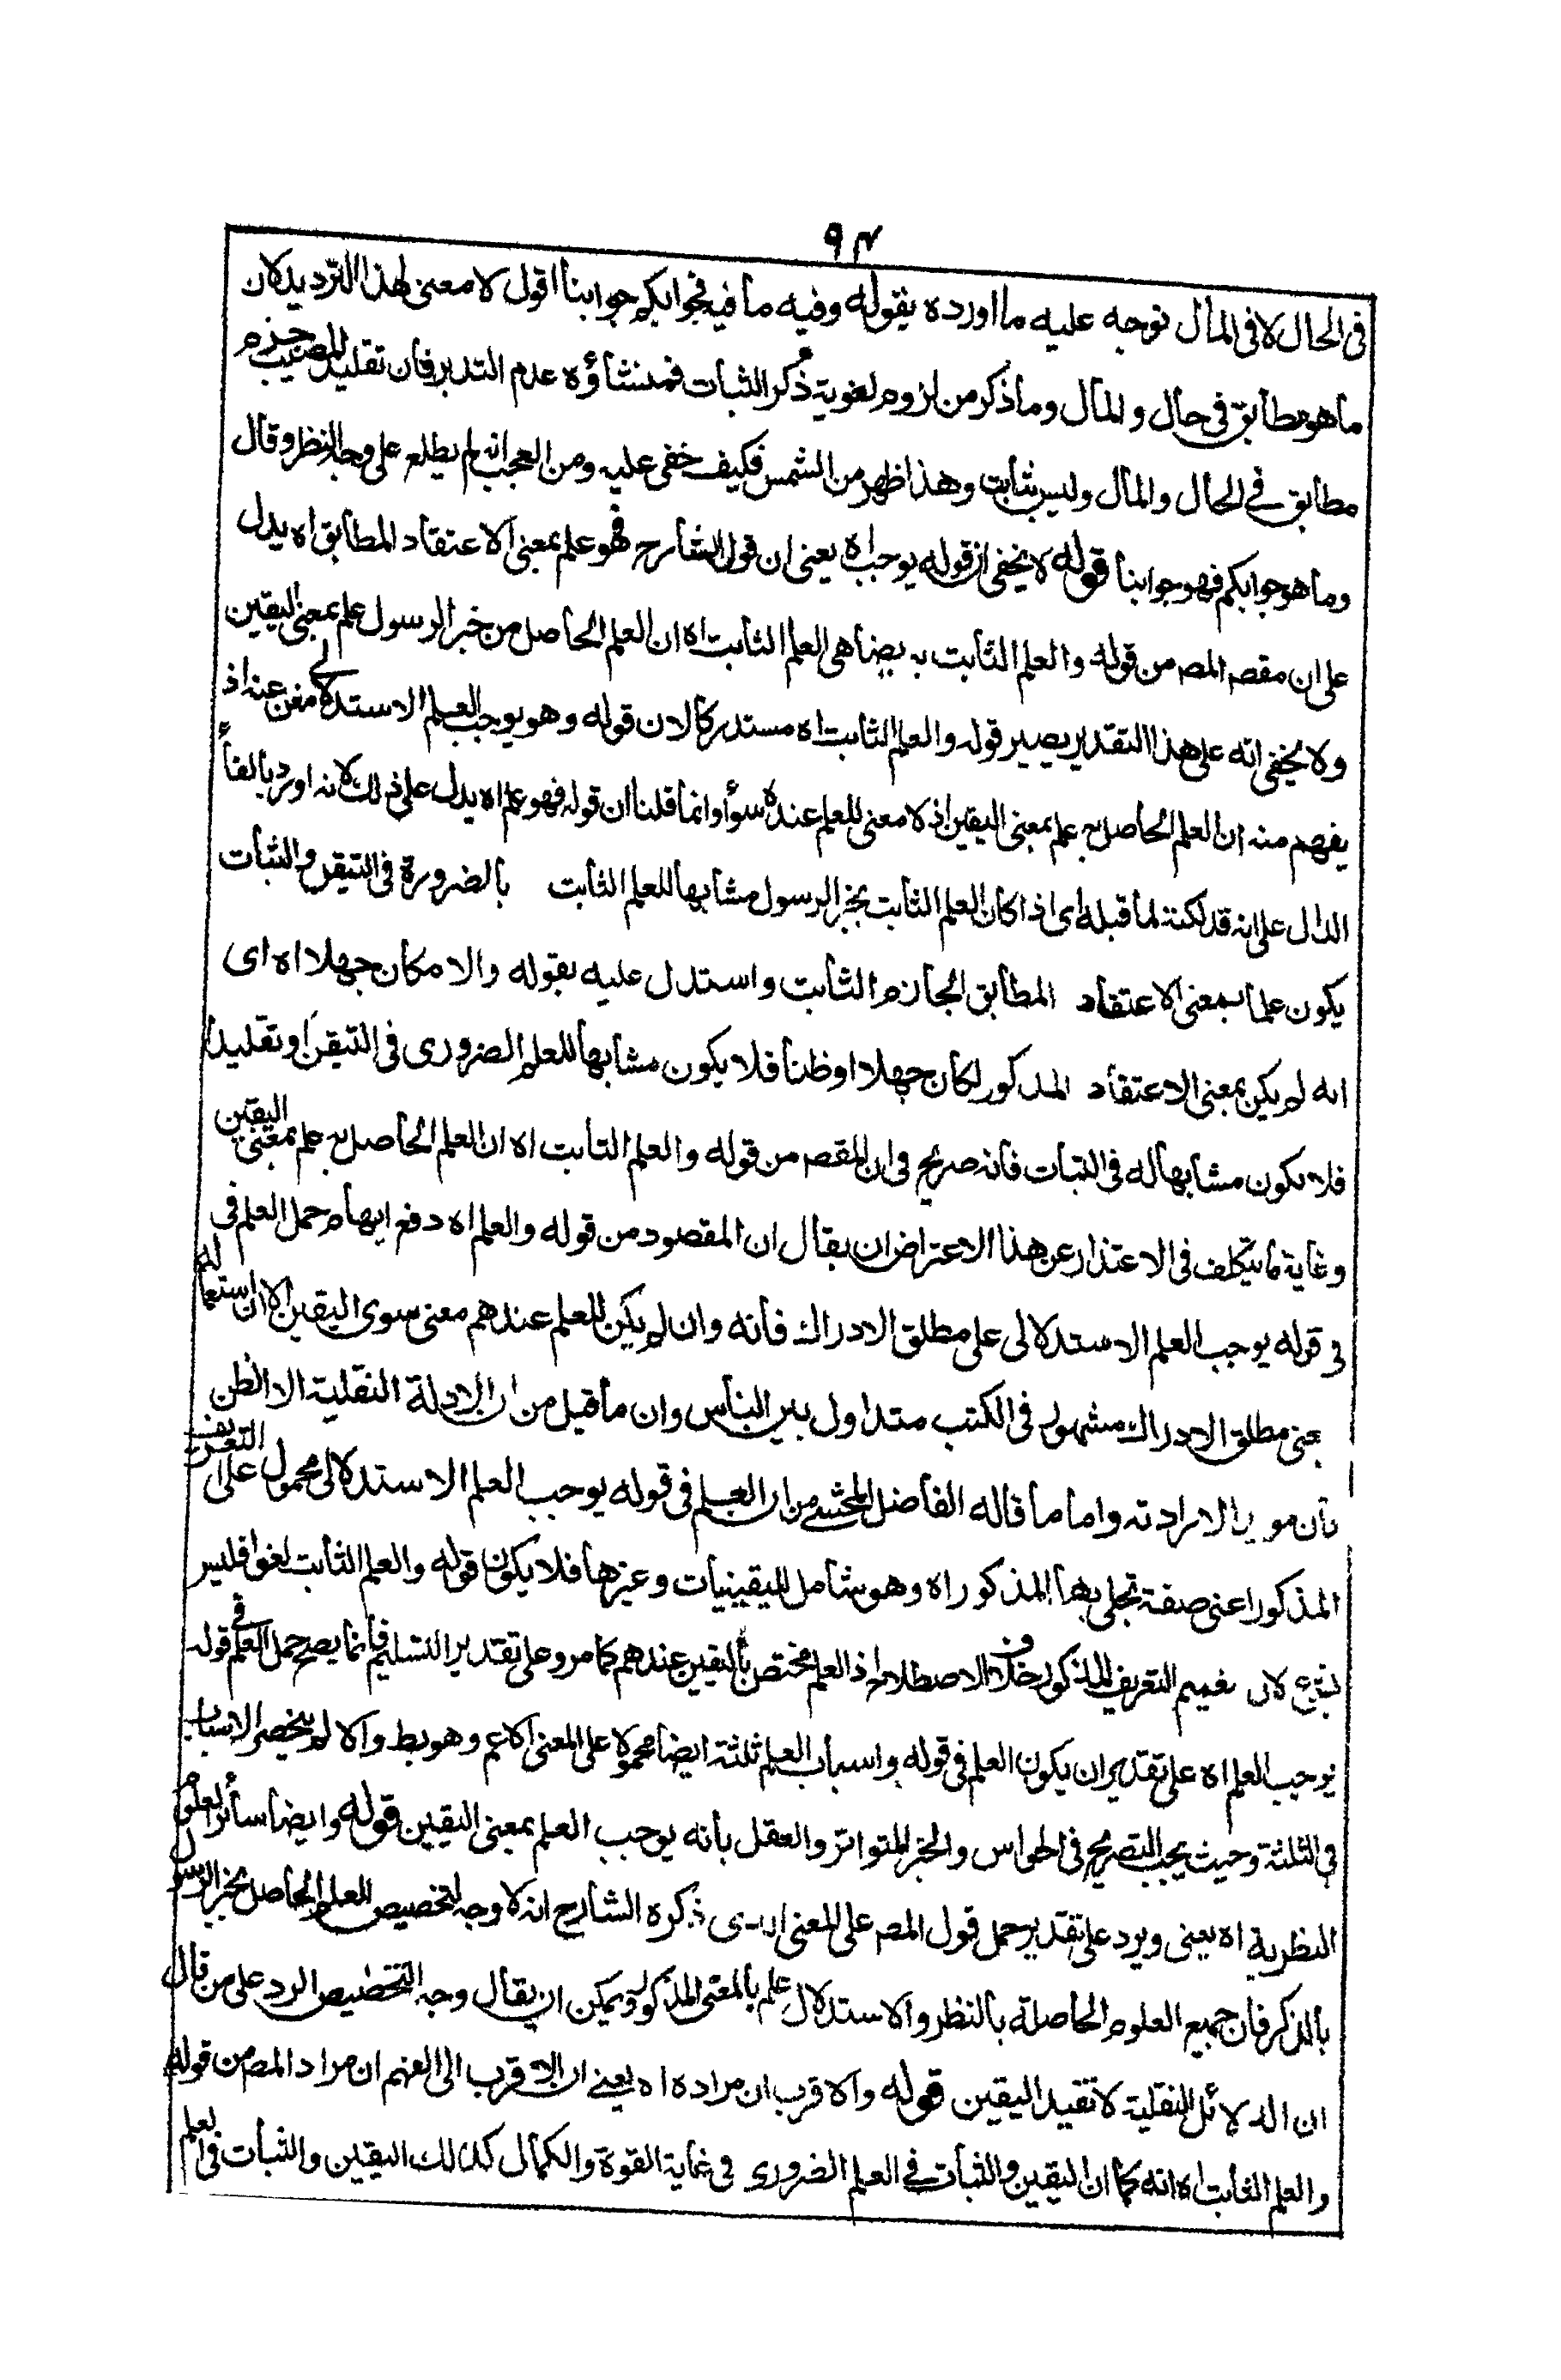 ٩٤
فى الحال لا فى المآل توجه عليه ما اورده بقوله وفيه ما فيه فجوابكم جوابنا اقول لا معنى لهذا الترديد لان
ما هو مطابق فى حال والمآل وما ذكر من لزوم لغوية ذكر الثبات فمنشاؤه عدم التدبر فان تقليد المصيب جزم
مطابق فى الحال والمآل وليس بثابت وهذا اظهر من الشمس فكيف خفى عليه ومن العجب انه لم يطلع على وجه النظر وقال
وما هو جوابكم فهو جوابنا قوله لا يخفى ان قوله يوجب اه يعنى ان قول الشارح فهو علم بمعنى الاعتقاد المطابق اه يدل
على ان مقصد المصـ من قوله والعلم الثابت به يضاهى العلم الثابت اه ان العلم الحاصل من خبر الرسول علم بمعنى اليقين
ولا يخفى انه على هذا التقدير يصير قوله والعلم الثابت اه مستدركا لان قوله وهو يوجب العلم الاستدلالى مغن عنه اذ
يفهم منه ان العلم الحاصل به علم بمعنى اليقين اذ لا معنى للعلم عنده سواه وانما قلنا ان قوله فهو علم اه يدل على ذلك لانه اورد بالفاء
الدال على انه فذلكة لما قبله اى اذا كان العلم الثابت بخبر الرسول مشابها للعلم الثابت بالضرورة فى التيقن والثبات
يكون علما بمعنى الاعتقاد المطابق الجازم الثابت واستدل عليه بقوله والا مكان جهلا اه اى
انه لو لم يكن بمعنى الاعتقاد المذكور لكان جهلا او ظنا فلا يكون مشابها للعلم الضرورى فى التيقن او تقليدا
فلا يكون مشابها له فى الثبات فانه صريح فى ان المقصـ من قوله والعلم الثابت اه ان العلم الحاصل به علم بمعنى اليقين
وغاية ما يتكلف فى الاعتذار عن هذا الاعتراض ان يقال ان المقصود من قوله والعلم اه دفع ايهام حمل العلم فى
فى قوله يوجب العلم الاستدلالى على مطلق الادراك فانه وان لم يكن للعلم عندهم معنى سوى اليقين الا ان استعماله
بمعنى مطلق الادراك مشهور فى الكتب متداول بين الناس وان ما قيل من ان الادلة النقلية الا الظن
الارادته واما ما قاله الفاضل المحشى من ان العلم فى قوله يوجب العلم الاستدلالى محمول على التعريف
المذكور اعنى صفة تجلى بها المذكور اه وهو شامل لليقينيات وغيرها فلا يكون قوله والعلم الثابت لغوا فليس
لان تعميم التعريف المذكور خلاف الاصطلاح اذ العلم مختص باليقين عندهم كما مر وعلى تقدير التسليم فانما يصح حمل العلم فى قوله
يوجب العلم اه على تقدير ان يكون العلم فى قوله واسباب العلم ثلثة ايضا محمولا على المعنى الاعم وهو بط والا لم ينحصر الاسباب
فى الثلثة وحيث يجب التصريح فى الحواس والخبر المتواتر والعقل بانه يوجب العلم بمعنى اليقين قوله وايضا سائر العلوم
النظرية اه يعنى ويرد على تقدير حمل قول المصـ على المعنى الذى ذكره الشارح انه لا وجه لتخصيص العلم الحاصل بخبر الرسول
بالذكر فان جميع العلوم الحاصلة بالنظر والاستدلال علم بالمعنى المذكور ويمكن ان يقال وجه التخصيص الرد على من قال
ان الدلائل النقلية لا تفيد اليقين قوله والاقرب ان مراده اه يعنى ان الاقرب الى الفهم ان مراد المصـ من قوله
والعلم الثابت اه انه كما ان اليقين والثبات فى العلم الضرورى فى غاية القوة والكمال كذلك اليقين والثبات فى العلم